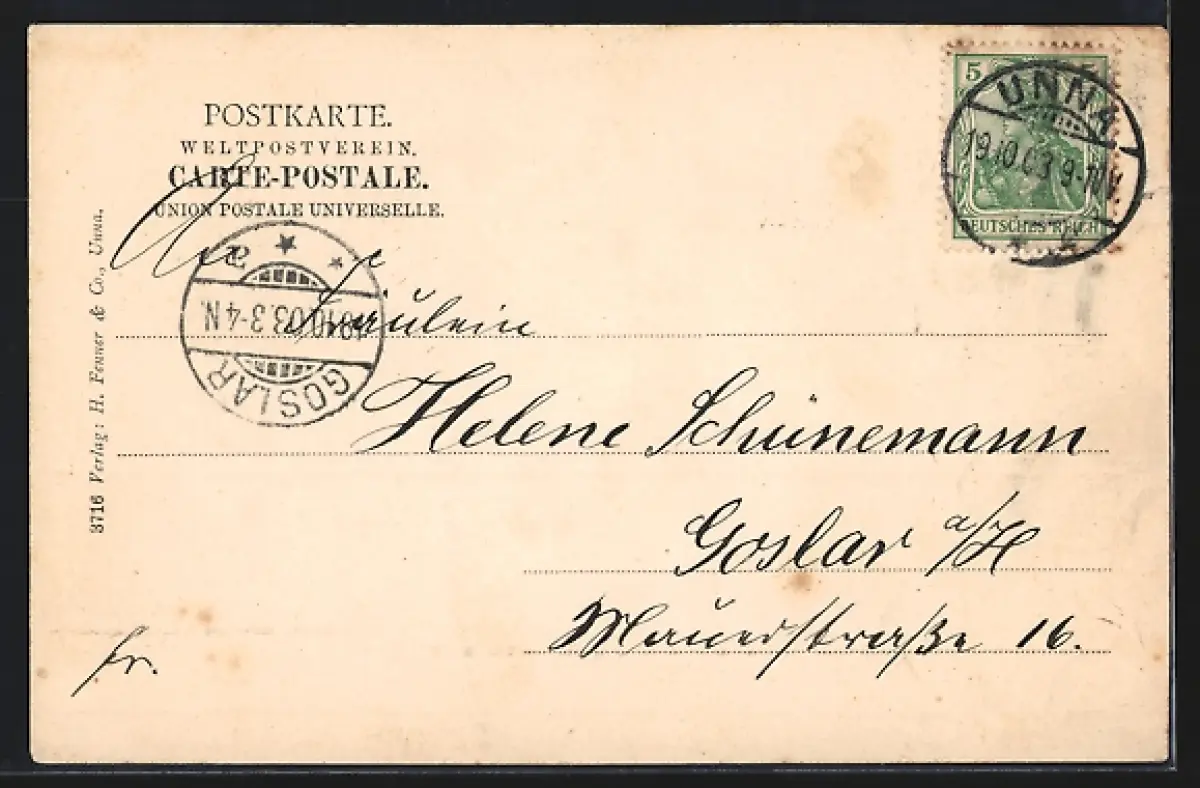 POSTKARTE.
WELTPOSTVEREIN.
CARTE-POSTALE.
UNION POSTALE UNIVERSELLE.
5 5
DEUTSCHES REICH
UNNA
19.10.03 9-10V.
* b
An
Fräulein
Helene Schünemann
Goslar a/H
Mauerstraße 16.
fr.
GOSLAR
19.10.03.3-4N.
3716 Verlag: H. Fenner & Co., Unna.